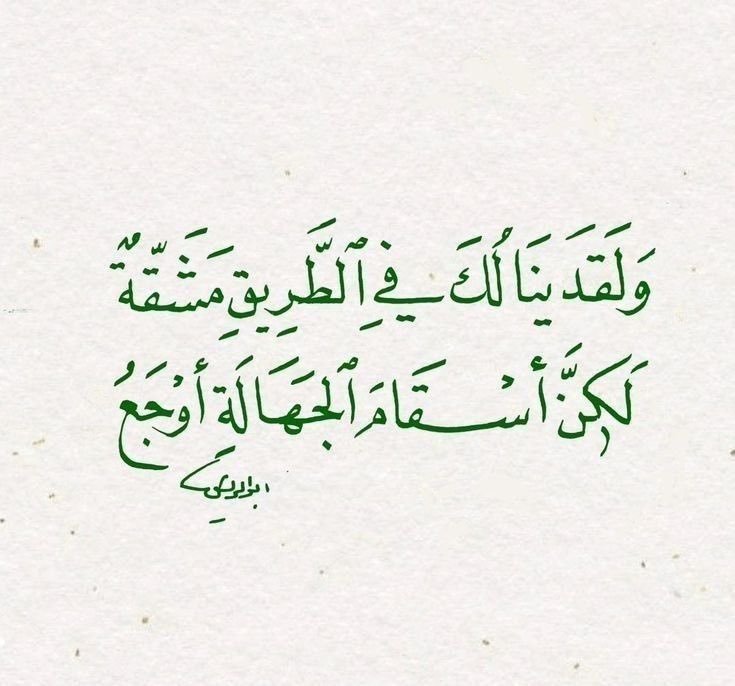 وَلَقَد يَنَالُكَ فِي ٱلطَّرِيقِ مَشَقَّةٌ
لَكِنَّ أَسْقَامَ ٱلجَهَالَةِ أَوْجَعُ